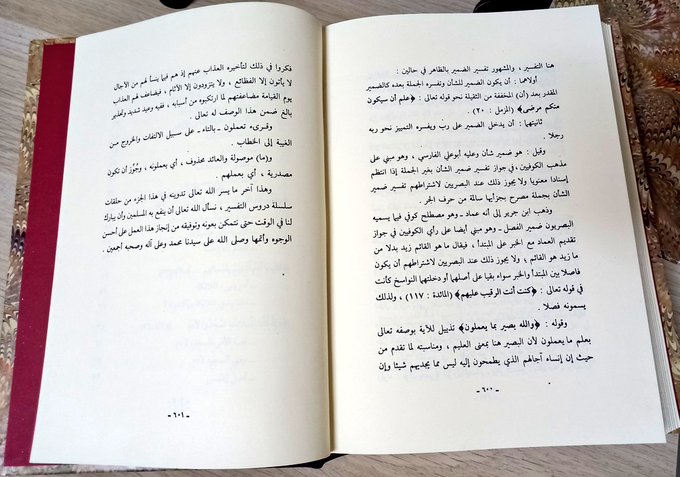 هنا التفسير ، والمشهور تفسير الضمير بالظاهر في حالين :
أولاهما : أن يكون الضمير للشأن ويفسره الجملة بعده كالضمير
المقدر بعد (أن) المخففة من الثقيلة نحو قوله تعالى : ﴿علم أن سيكون
منكم مرضى﴾ (المزمل : ٢٠) .
ثانيتهما : أن يدخل الضمير على رب ويفسره التمييز نحو ربه
رجلا .
وقيل : هو ضمير شأن وعليه أبوعلي الفارسي ، وهو مبني على
مذهب الكوفيين ، في جواز تفسير ضمير الشأن بغير الجملة إذا انتظم
إسنادا معنويا ولا يجوز ذلك عند البصريين لاشتراطهم تفسير ضمير
الشأن بجملة مصرح بجزأيها سالمة من حرف الجر .
وذهب ابن جرير إلى أنه عماد ـ وهو مصطلح كوفي فيما يسميه
البصريون ضمير الفصل ـ وهو مبني أيضا على رأي الكوفيين في جواز
تقديم العماد مع الخبر على المبتدأ ، فيقال ما هو القائم زيد بدلا من
ما زيد هو القائم ، ولا يجوز ذلك عند البصريين لاشتراطهم أن يكون
فاصلا بين المبتدأ والخبر سواء بقيا على أصلهما أو دخلتهما النواسخ كأنت
في قوله تعالى : ﴿كنت أنت الرقيب عليهم﴾ (المائدة : ١١٧) ، ولذلك
يسمونه فصلا .
وقوله : ﴿والله بصير بما يعملون﴾ تذييل للآية بوصفه تعالى
بعلم ما يعملون لأن البصير هنا بمعنى العليم ، ومناسبته لما تقدم من
حيث إن إنساء آجالهم الذي يطمحون إليه ليس مما يجديهم شيئا وإن
ـ ٦٠٠ ـ
فكروا في ذلك لتأخيره العذاب عنهم إذ هم فيما ينسأ لهم من الآجال
لا يأتون إلا الفظائع ، ولا يتزودون إلا الآثام ، فيضاعف لهم العذاب
يوم القيامة مضاعفتهم لما ارتكبوه من أسبابه ، ففيه وعيد شديد وتحذير
بالغ ضمن هذا الوصف لله تعالى .
وقرىء تعملون ـ بالتاء ـ على سبيل الالتفات والخروج من
الغيبة إلى الخطاب .
و(ما) موصولة والعائد محذوف ، أي يعملونه ، وجُوِّز أن تكون
مصدرية ، أي بعملهم .
وهذا آخر ما يسر الله تعالى تدوينه في هذا الجزء من حلقات
سلسلة دروس التفسير ، نسأل الله تعالى أن ينفع به المسلمين وأن يبارك
لنا في الوقت حتى نتمكن بعونه وتوفيقه من إنجاز هذا العمل على أحسن
الوجوه وأتمها وصلى الله على سيدنا محمد وعلى آله وصحبه أجمعين .
ـ ٦٠١ ـ